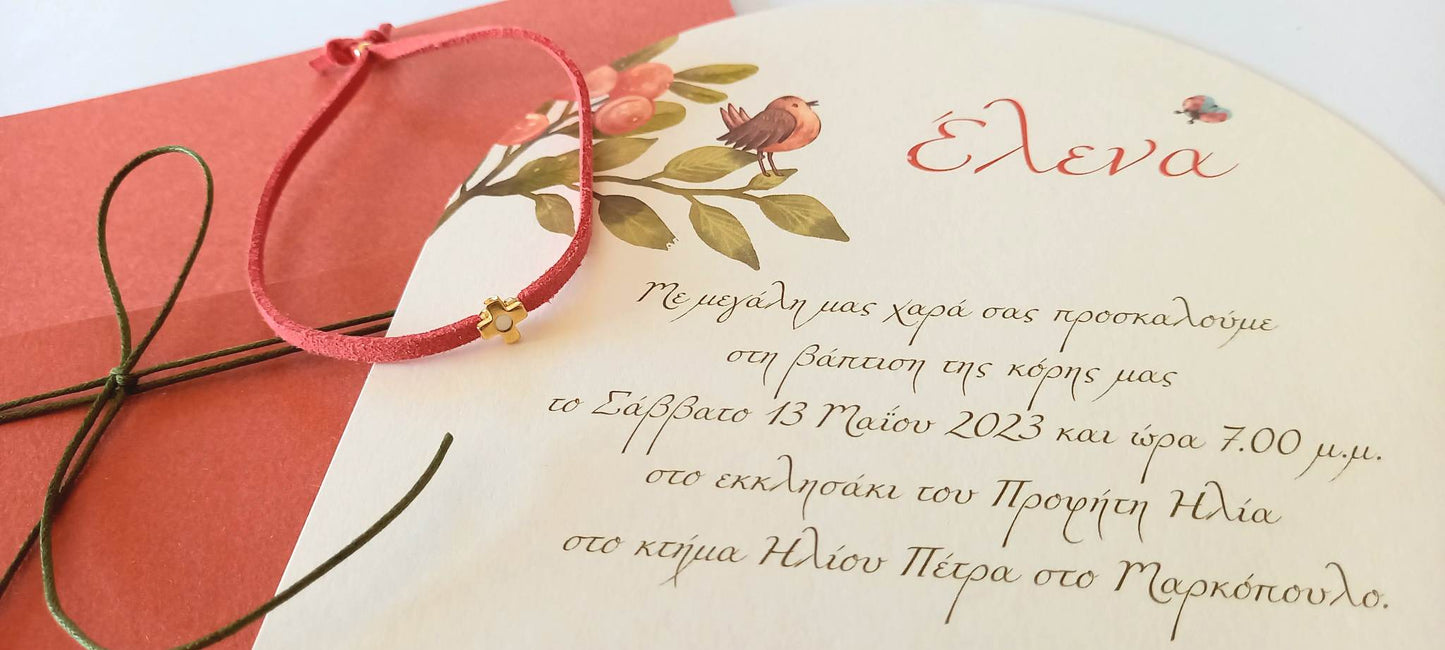 Έλενα
Με μεγάλη μας χαρά σας προσκαλούμε
στη βάπτιση της κόρης μας
το Σάββατο 13 Μαΐου 2023 και ώρα 7.00 μ.μ.
στο εκκλησάκι του Προφήτη Ηλία
στο κτήμα Ηλίου Πέτρα στο Μαρκόπουλο.